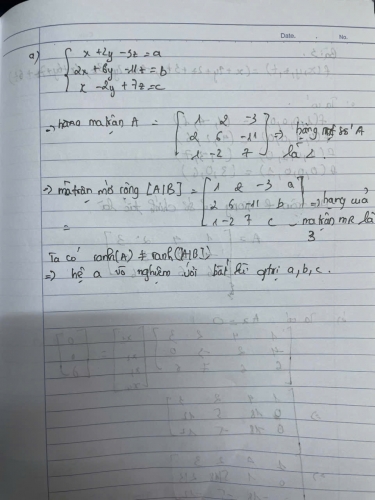 Date. No.
a) { x + 2y - 3z = a
2x + 6y - 11z = b
x - 2y + 7z = c
=> hạng ma trận A = [ 1 2 -3
2 6 -11 => hạng A
1 -2 7 ] là 2
=> ma trận mở rộng [A|B] = [ 1 2 -3 a
2 6 -11 b => hạng của
= 1 -2 7 c ] ma trận MR là
3
Ta có rank(A) ≠ rank([A|B])
=> hệ a vô nghiệm với bất kì gtrị a, b, c.